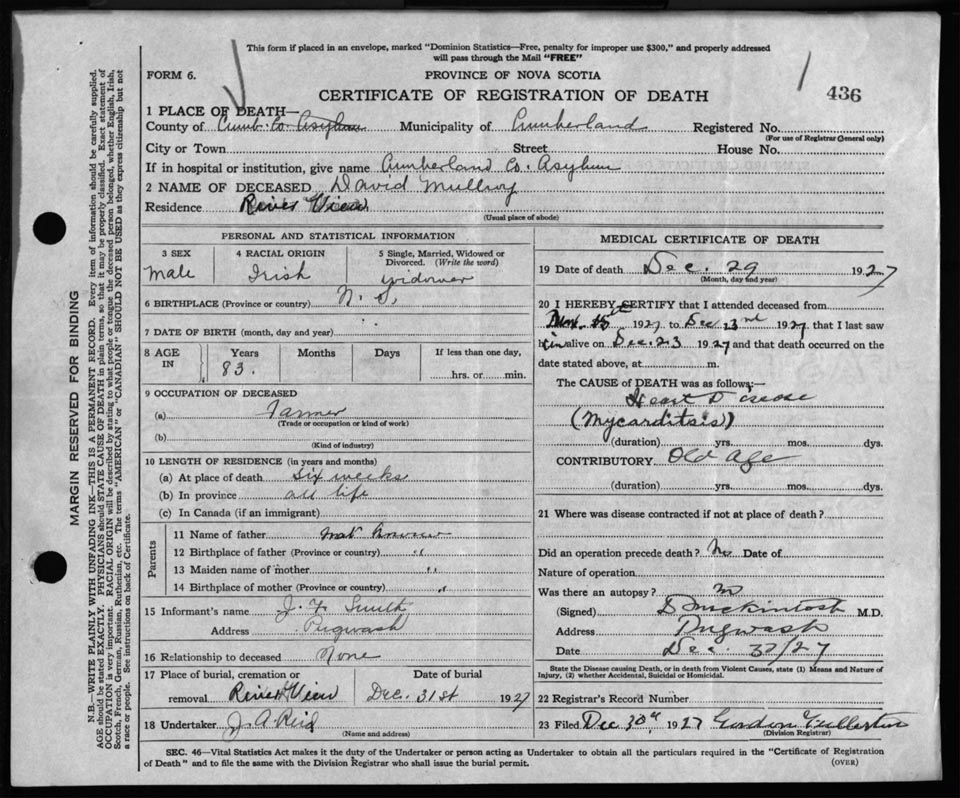 This form if placed in an envelope, marked "Dominion Statistics—Free, penalty for improper use $300," and properly addressed
will pass through the Mail "FREE"
FORM 6.
PROVINCE OF NOVA SCOTIA
CERTIFICATE OF REGISTRATION OF DEATH
436
1 PLACE OF DEATH—
County of Cumb. Co. Asylum Municipality of Cumberland Registered No.
(For use of Registrar General only)
City or Town Street House No.
If in hospital or institution, give name Cumberland Co. Asylum
2 NAME OF DECEASED David
Residence River View
(Usual place of abode)
PERSONAL AND STATISTICAL INFORMATION
3 SEX 4 RACIAL ORIGIN 5 Single, Married, Widowed or Divorced. (Write the word)
Male Irish Widower
6 BIRTHPLACE (Province or country) N. S.
7 DATE OF BIRTH (month, day and year)
8 AGE IN Years Months Days If less than one day,
83. hrs. or min.
9 OCCUPATION OF DECEASED
(a) Farmer
(Trade or occupation or kind of work)
(b)
(Kind of industry)
10 LENGTH OF RESIDENCE (in years and months)
(a) At place of death Six weeks
(b) In province all life
(c) In Canada (if an immigrant)
Parents
11 Name of father not known
12 Birthplace of father (Province or country) "
13 Maiden name of mother "
14 Birthplace of mother (Province or country) "
15 Informant's name J. F. Smith
Address Pugwash
16 Relationship to deceased None
17 Place of burial, cremation or removal River View
Date of burial
Dec. 31st 1927
18 Undertaker J. A. Reid
(Name and address)
MEDICAL CERTIFICATE OF DEATH
19 Date of death Dec. 29 1927
(Month, day and year)
20 I HEREBY CERTIFY that I attended deceased from
Nov. 15th 1927 to Dec 23rd 1927 that I last saw
him alive on Dec. 23 1927 and that death occurred on the
date stated above, at m.
The CAUSE OF DEATH was as follows:—
Heart Disease
(Mycarditsis)
(duration) yrs. mos. dys.
CONTRIBUTORY Old Age
(duration) yrs. mos. dys.
21 Where was disease contracted if not at place of death?
Did an operation precede death? No Date of
Nature of operation
Was there an autopsy? no
(Signed) D Mckintosh M.D.
Address Pugwash
Date Dec. /27
State the Disease causing Death, or in death from Violent Causes, state (1) Means and Nature of
Injury, (2) whether Accidental, Suicidal or Homicidal.
22 Registrar's Record Number
23 Filed Dec 30th 1927 Gordon Fullerton
(Division Registrar)
SEC. 46—Vital Statistics Act makes it the duty of the Undertaker or person acting as Undertaker to obtain all the particulars required in the "Certificate of Registration
of Death" and to file the same with the Division Registrar who shall issue the burial permit.
(OVER)
MARGIN RESERVED FOR BINDING
N.B.—WRITE PLAINLY WITH UNFADING INK—THIS IS A PERMANENT RECORD. Every item of information should be carefully supplied.
AGE should be stated EXACTLY. PHYSICIANS should STATE CAUSE OF DEATH in plain terms, so that it may be properly classified. Exact statement of
OCCUPATION is very important. RACIAL ORIGIN will be described by stating to what people or tongue the deceased person belonged, whether English, Irish,
Scotch, French, German, Russian, Ruthenian, etc. The terms "AMERICAN" or "CANADIAN" SHOULD NOT BE USED as they express citizenship but not
a race or people. See instructions on back of Certificate.